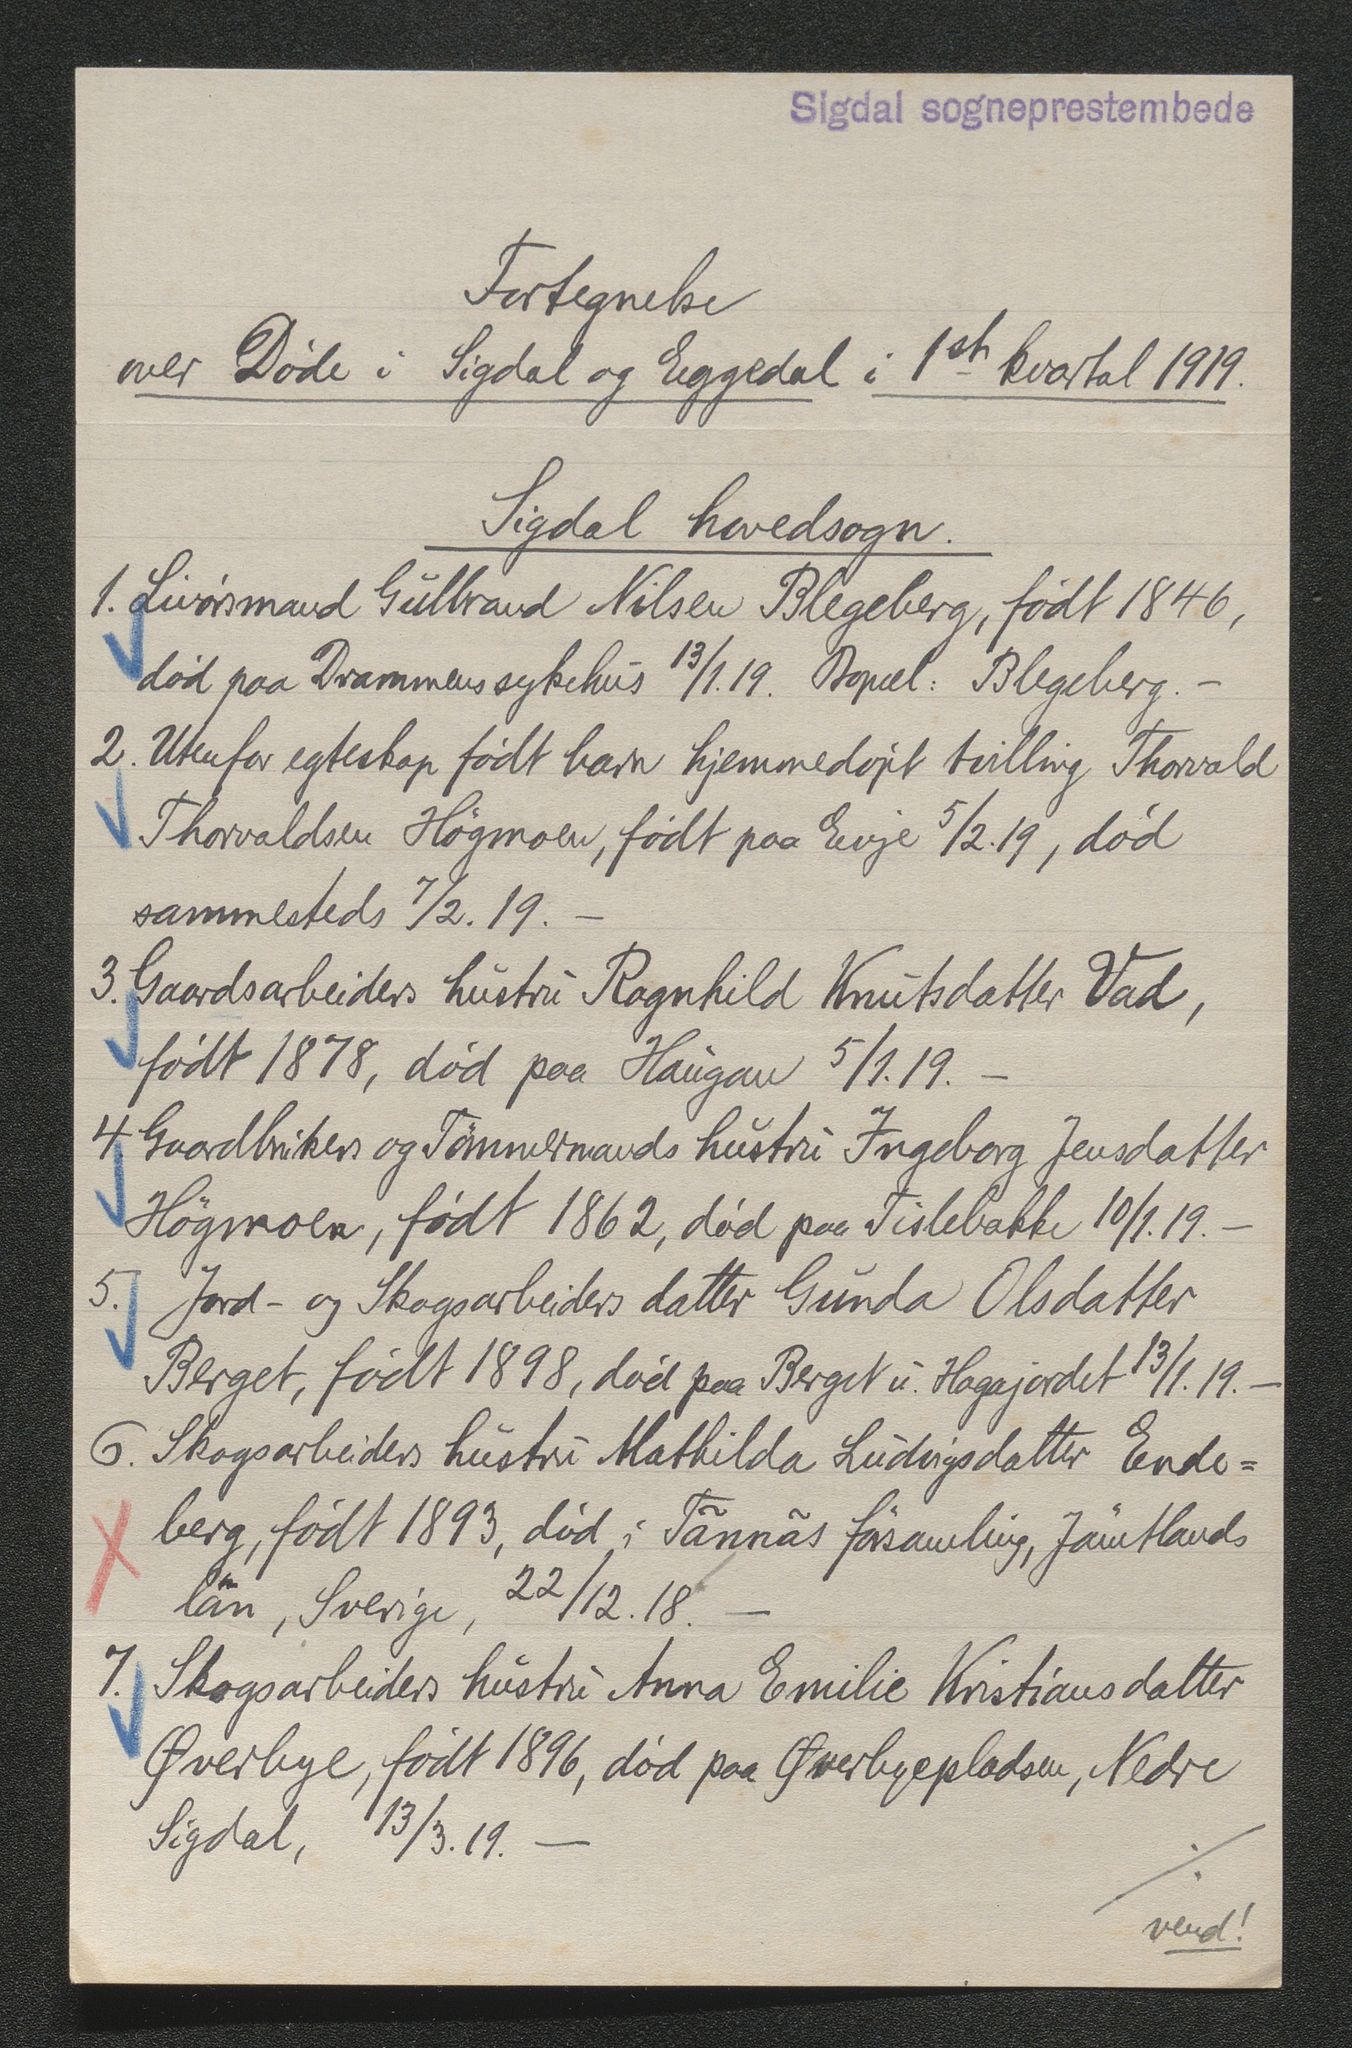 Sigdal sogneprestembede
Fortegnelse
over Døde i Sigdal og Eggedal i 1ste kvartal 1919.
Sigdal hovedsogn.
1. Livørsmand Gulbrand Nilsen Blegeberg, født 1846,
død paa Drammens sykehus 13/1.19. Bopæl: Blegeberg. –
2. Utenfor egteskap født barn hjemmedøpt tvilling Thorvald
Thorvaldsen Högmoen, født paa Evje 5/2.19, død
sammesteds 7/2.19. –
3. Gaardsarbeiders hustru Ragnhild Knutsdatter Vad,
født 1878, død paa Haugan 5/1.19. –
4 Gaardbrukers og Tömmermands hustru Ingeborg Jensdatter
Högmoen, født 1862, død paa Tislebakke 10/1.19. –
5. Jord- og Skogsarbeiders datter Gunda Olsdatter
Berget, født 1898, død paa Berget u. Hagajordet 13/1.19. –
6. Skogsarbeiders hustru Mathilda Ludvigsdatter Ende=
berg, født 1893, død i Tännäs församling, Jämtlands
län, Sverige, 22/12.18. –
7. Skogsarbeiders hustru Anna Emilie Kristiansdatter
Øverbye, født 1896, død paa Øverbyepladsen, Nedre
Sigdal, 13/3.19. –
./.
vend!